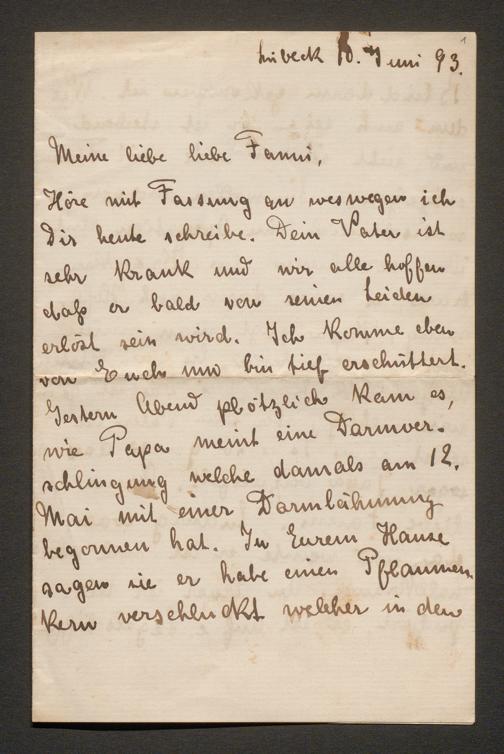 1
Lübeck 10. Juni 93.
Meine liebe liebe Fanni,
Höre mit Fassung an weswegen ich
Dir heute schreibe. Dein Vater ist
sehr krank und wir alle hoffen
daß er bald von seinen Leiden
erlöst sein wird. Ich komme eben
von Euch und bin tief erschüttert.
Gestern Abend plötzlich kam es,
wie Papa meint eine Darmver-
schlingung welche damals am 12.
Mai mit einer Darmlähmung
begonnen hat. In Eurem Hause
sagen sie er habe einen Pflaumen
kern verschluckt welcher in den